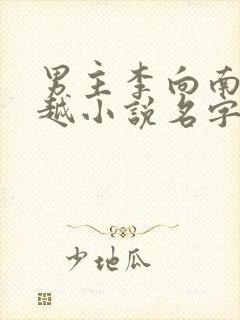 男主李向南
越小说名字
少地瓜